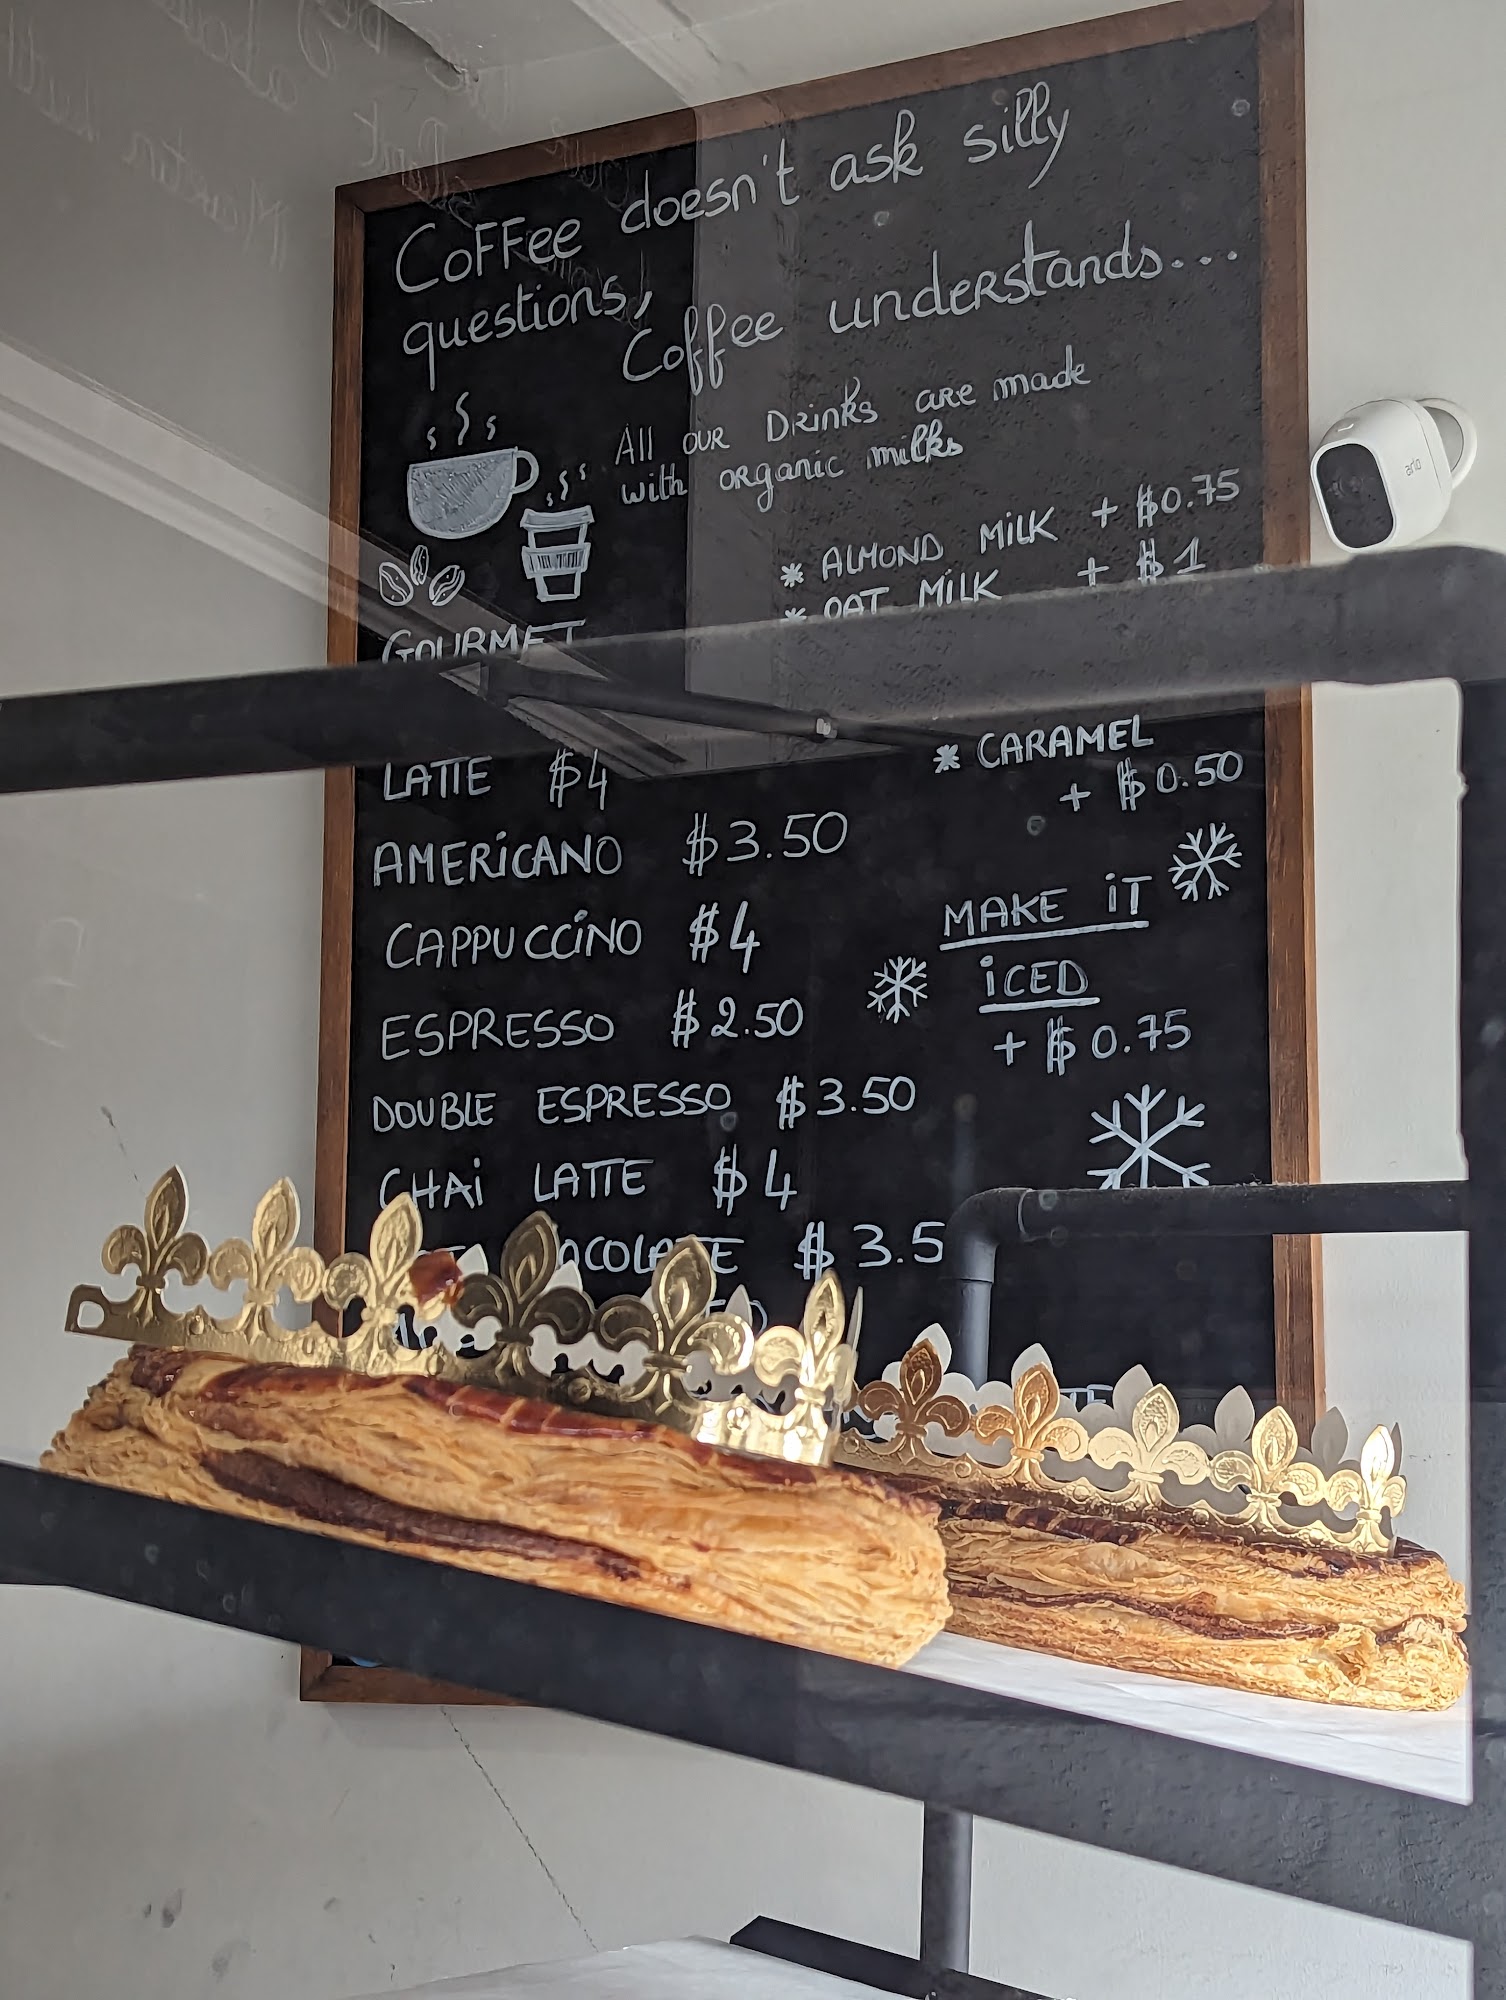 Coffee doesn't ask silly
questions,
Coffee understands...
All our Drinks are made
with organic milks
* ALMOND MILK + $0.75
* OAT MILK + $1
GOURMET
* CARAMEL
+ $0.50
LATTE $4
AMERICANO $3.50
CAPPUCCINO $4
ESPRESSO $2.50
DOUBLE ESPRESSO $3.50
CHAI LATTE $4
$3.5
MAKE IT
ICED
+ $0.75
arlo